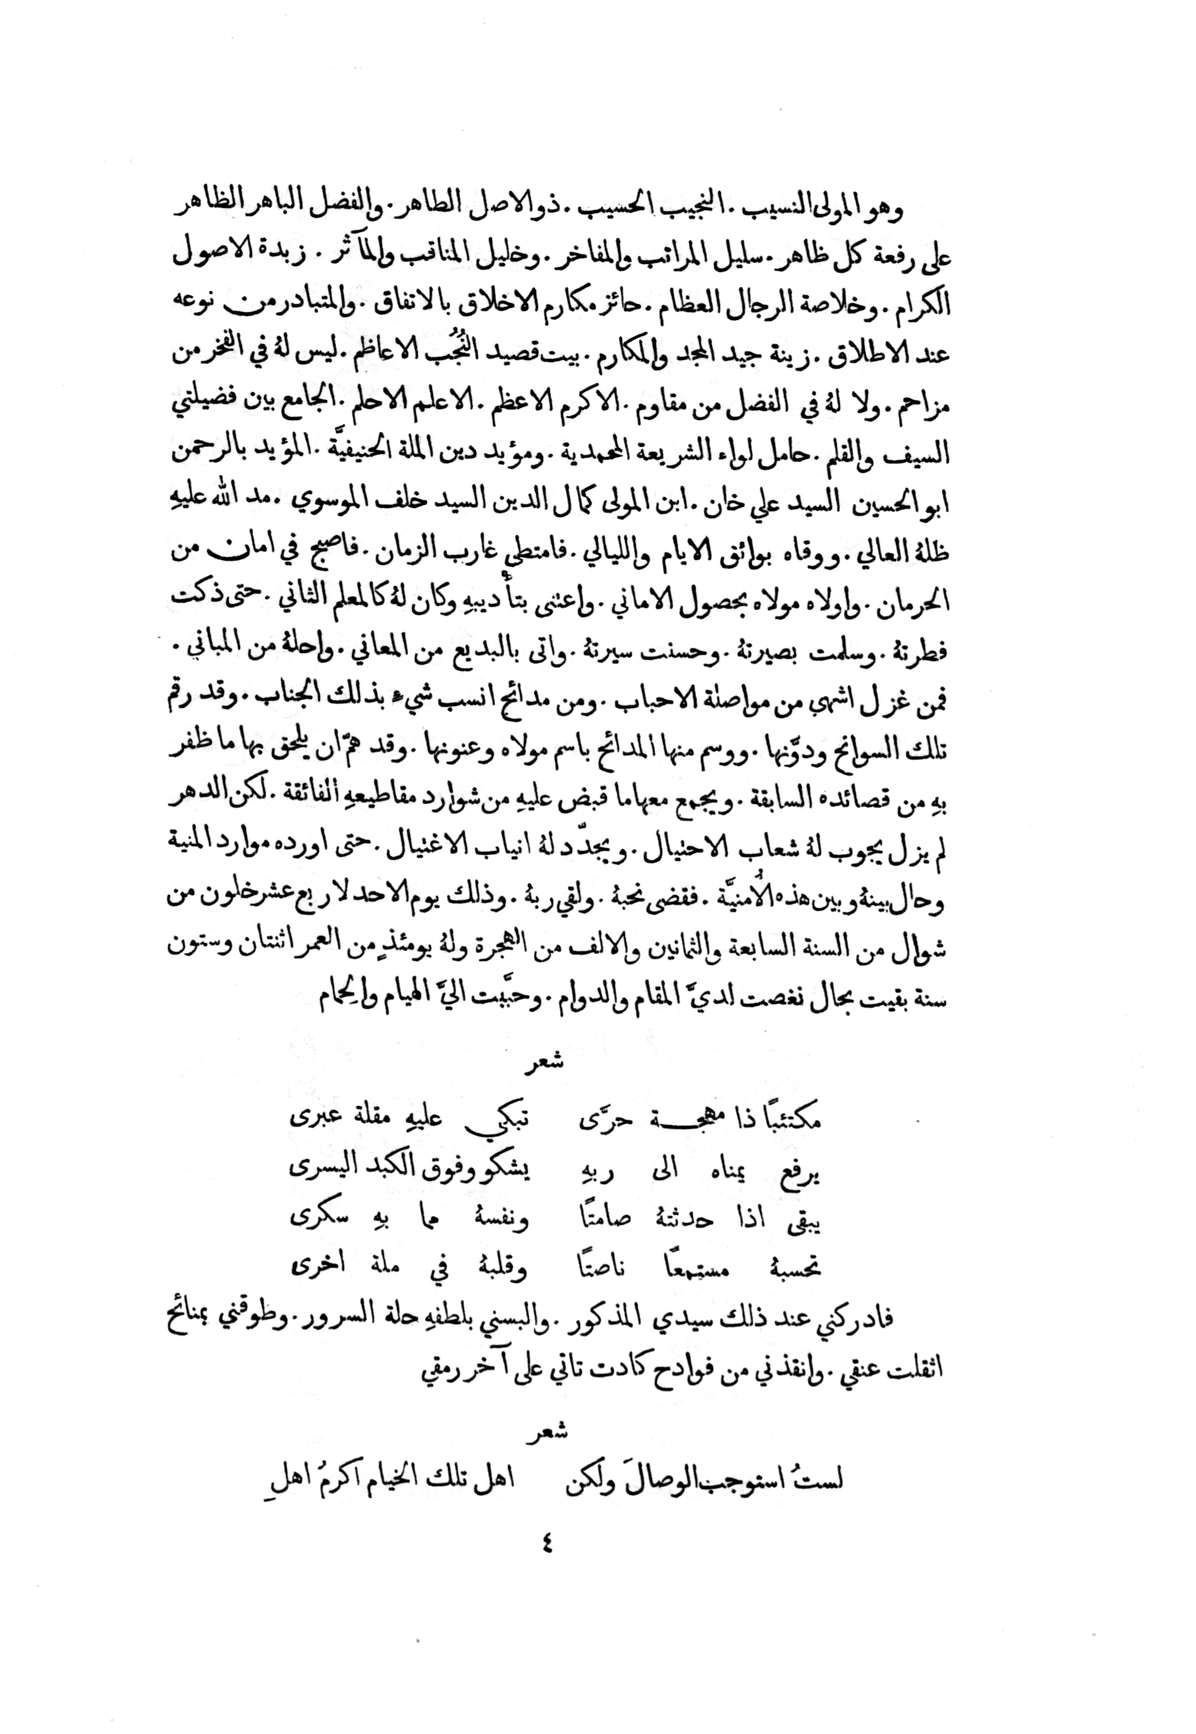 وهو المولى النسيب . النجيب الحسيب . ذو الاصل الطاهر . والفضل الباهر الظاهر
على رفعة كل ظاهر . سليل المراتب والمفاخر . وخليل المناقب والمآثر . زبدة الاصول
الكرام . وخلاصة الرجال العظام . حائز مكارم الاخلاق بالاتفاق . والمتبادر من نوعه
عند الاطلاق . زينة جيد المجد والمكارم . بيت قصيد النُجُب الاعاظم . ليس لهُ في الفخر من
مزاحم . ولا لهُ في الفضل من مقاوم . الاكرم الاعظم . الاعلم الاحلم . الجامع بين فضيلتي
السيف والقلم . حامل لواء الشريعة المحمدية . ومؤيد دين الملة الحنيفيَّة . المؤيد بالرحمن
ابو الحسين السيد علي خان . ابن المولى كمال الدين السيد خلف الموسوي . مد الله عليهِ
ظلهُ العالي . ووقاه بوائق الايام والليالي . فامتطى غارب الزمان . فاصبح في امان من
الحرمان . واولاه مولاه بحصول الاماني . واعتنى بتأديبهِ وكان لهُ كالمعلم الثاني . حتى ذكت
فطرتهُ . وسلمت بصيرتهُ . وحسنت سيرتهُ . واتى بالبديع من المعاني . واحلهُ من المباني .
فمن غزل اشهى من مواصلة الاحباب . ومن مدائح انسب شيء بذلك الجناب . وقد رقم
تلك السوانح ودوَّنها . ووسم منها المدائح باسم مولاه وعنونها . وقد همّ ان يلحق بها ما ظفر
بهِ من قصائده السابقة . ويجمع معها ما قبض عليهِ من شوارد مقاطيعهِ الفائقة . لكن الدهر
لم يزل يجوب لهُ شعاب الاحتيال . ويجدّد لهُ انياب الاغتيال . حتى اورده موارد المنية
وحال بينهُ وبين هذه الأُمنيَّة . فقضى نحبهُ . ولقي ربهُ . وذلك يوم الاحد لاربع عشر خلون من
شوال من السنة السابعة والثمانين والالف من الهجرة ولهُ يومئذٍ من العمر اثنتان وستون
سنة بقيت بحال نغصت لديَّ المقام والدوام . وحبَّبت اليَّ الهيام والحِمام
شعر
مكتئبًا ذا مهجـــة حرَّى تبكي عليهِ مقلة عبرى
يرفع يمناه الى ربهِ يشكو وفوق الكبد اليسرى
يبقى اذا حدثتهُ صامتًا ونفسهُ مما بهِ سكرى
تحسبهُ مستمعًا ناصتًا وقلبهُ في ملة اخرى
فادركني عند ذلك سيدي المذكور . والبسني بلطفهِ حلة السرور . وطوقني بمنائح
اثقلت عنقي . وانقذني من فوادح كادت تاتي على آخر رمقي
شعر
لستُ استوجب الوصالَ ولكن اهل تلك الخيام اكرمُ اهلِ
٤